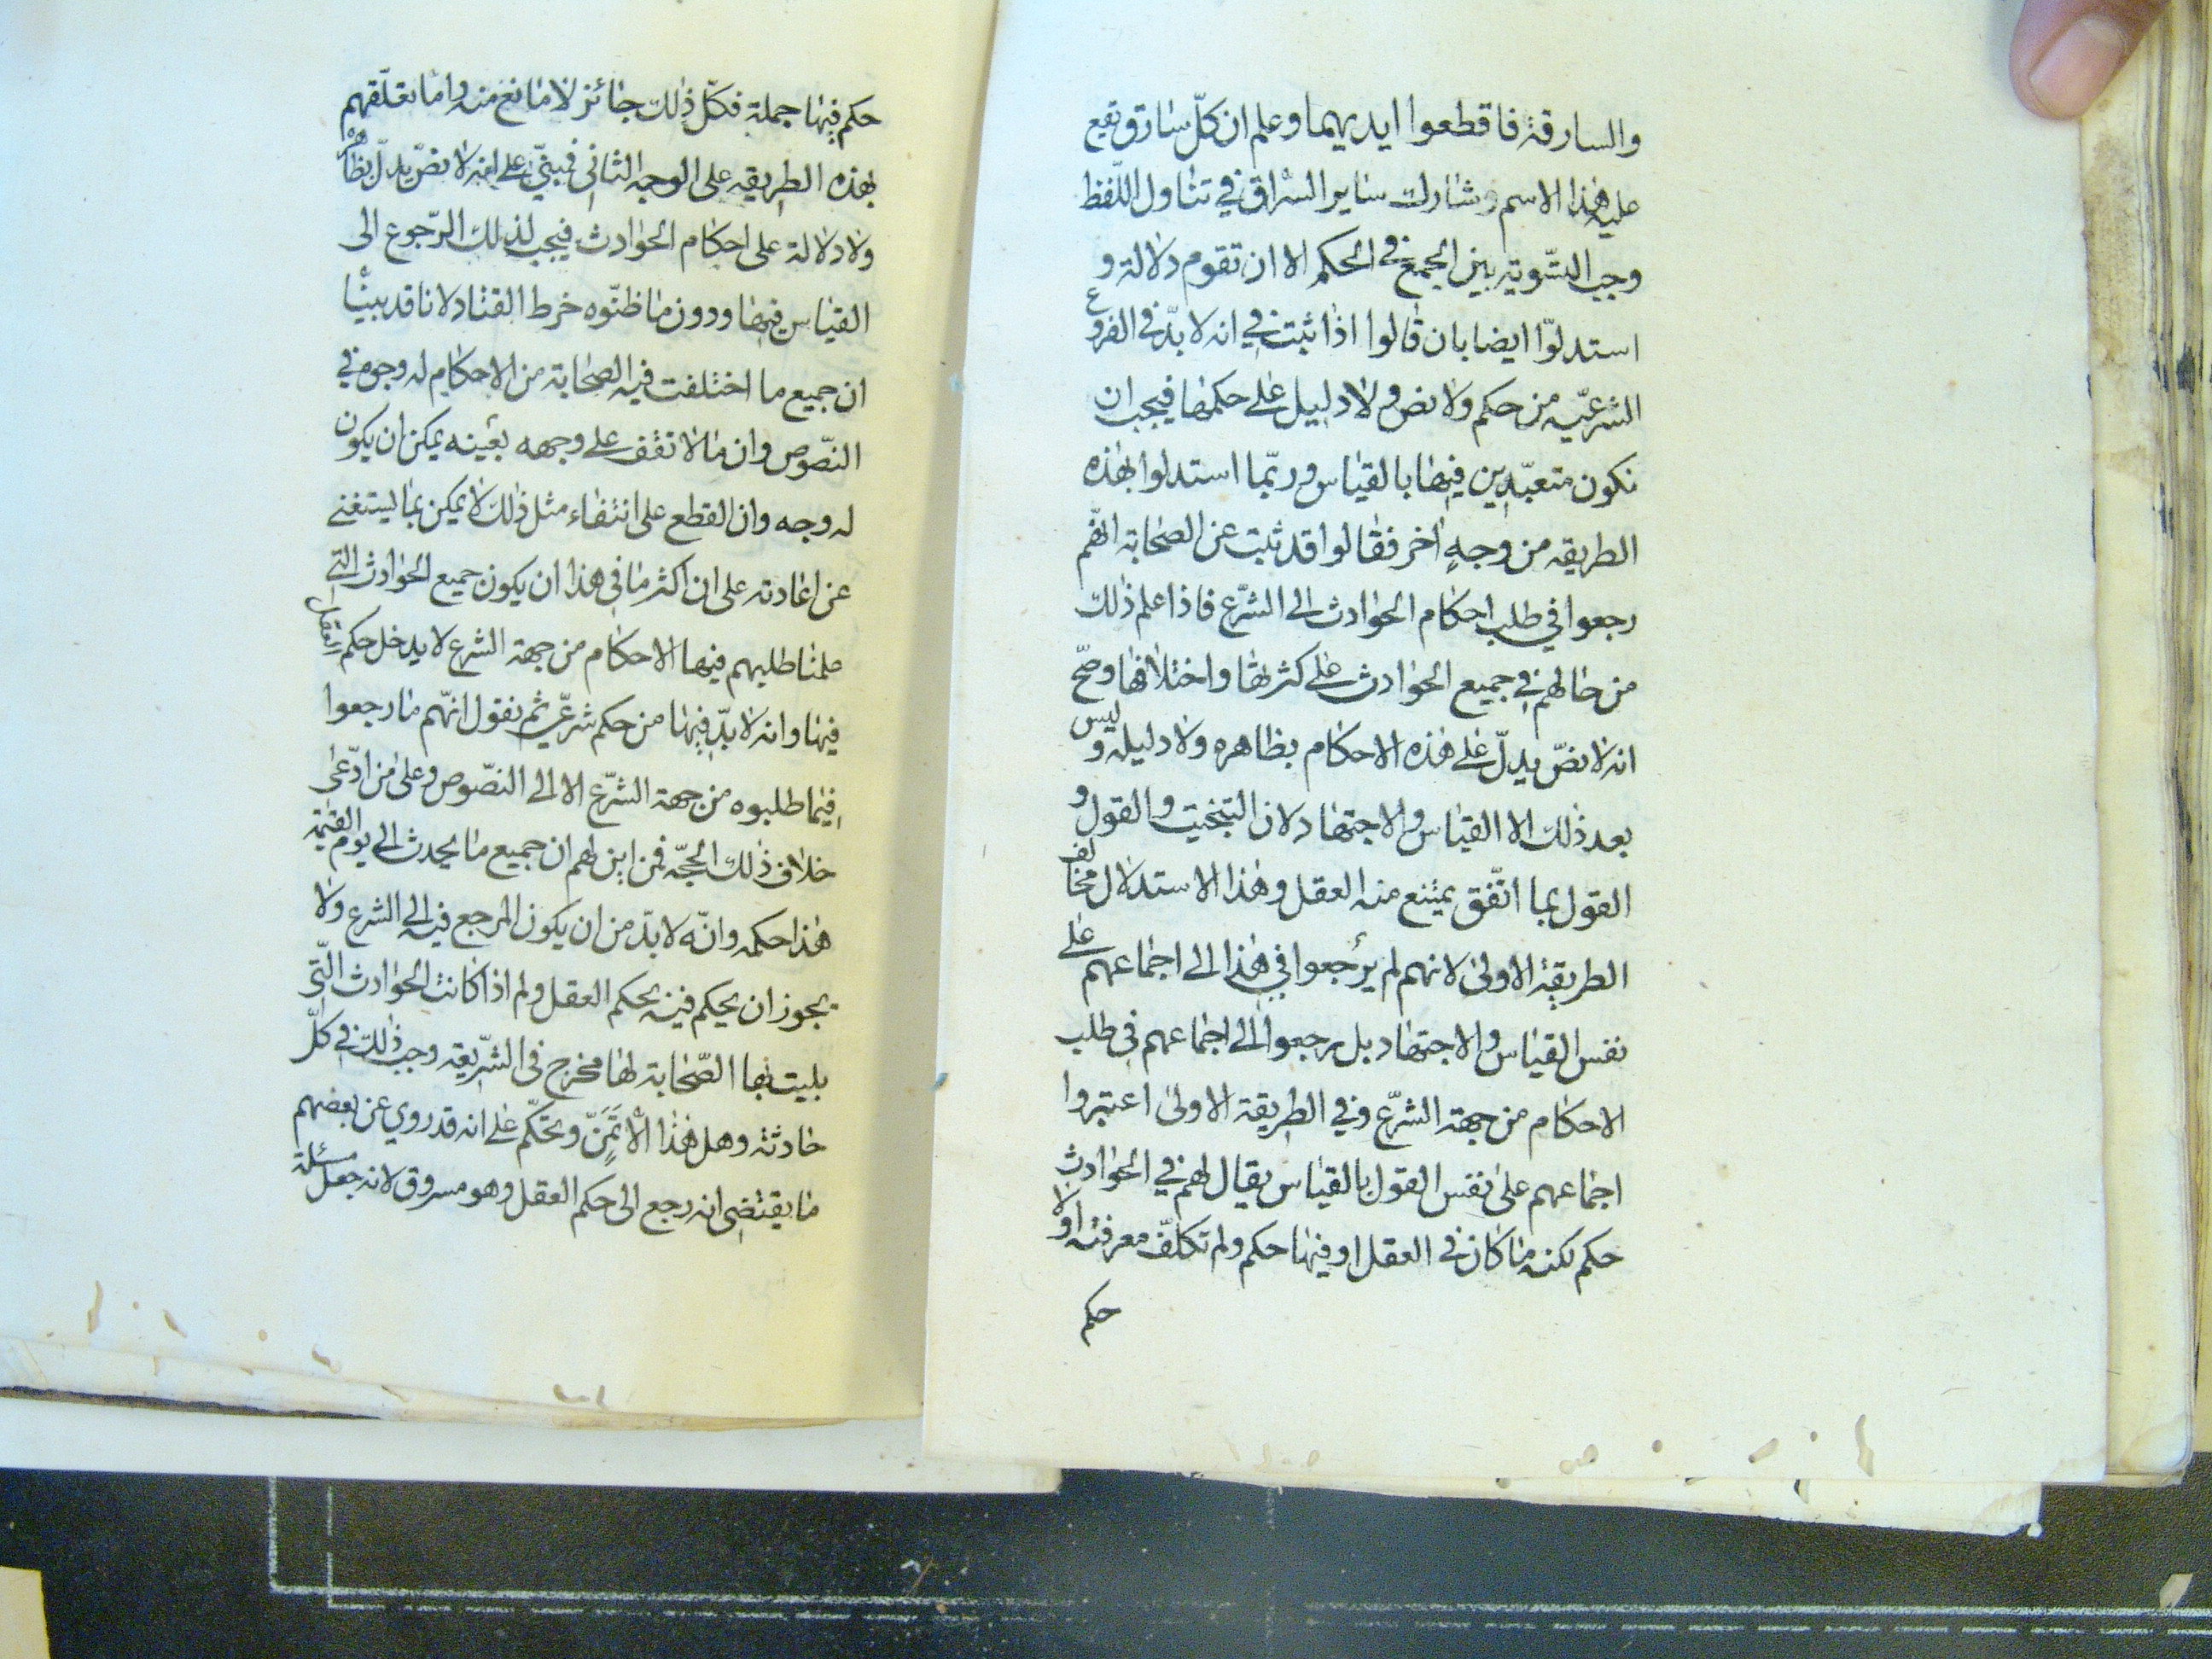 والسارقة فاقطعوا ايديهما وعلم ان كلّ سارق تقع
عليه هذا الاسم وشارك ساير السراق في تناول اللّفظ
وجب التّسوية بين الجمع في الحكم الا ان تقوم دلالة و
استدلوّا ايضا بان قالوا اذا ثبت في انه لا بدّ في الفروع
الشرعيّه من حكم ولا نص ولا دليل على حكمها فيجب ان
نكون متعبّدين فيها بالقياس وربّما استدلوا بهذه
الطريقه من وجهٍ اخر فقالوا قد ثبت عن الصحابة انهم
رجعوا في طلب احكام الحوادث الى الشرّع فاذا علم ذلك
من حالهم في جميع الحوادث على كثرتها واختلافها وصّح
انه لا نصّ يدلّ على هذه الاحكام بظاهره ولا دليله وليس
بعد ذلك الا القياس والاجتهاد لان التبخيت والقول و
القول بما اتّفق يمتنع منه العقل وهذا الاستدلال مخالف
الطريقة الاولى لانهم لم يرجعوا في هذا الى اجماعهم على
نفس القياس والاجتهاد بل رجعوا الى اجماعهم في طلب
الاحكام من جهة الشرّع وفي الطريقة الاولى اعتبروا
اجماعهم على نفس القول بالقياس يقال لهم في الحوادث
حكم لكنه ما كان في العقل او فيها حكم ولم تكلّف معرفته اولا
حكم
حكم فيها جملة فكلّ ذلك جائز لا مانع منه واما تعلّقهم
بهذه الطريقه على الوجه الثاني فمبنيّ على انه لا نصّ يدلّ بظاهره
ولا دلالة على احكام الحوادث فيجب لذلك الرّجوع الى
القياس فيها ودون ما ظنّوه خرط القتاد لانا قد بينّا
ان جميع ما اختلفت فيه الصحابة من الاحكام له وجوه في
النصّوص وان ما لا نقف على وجهه بعينه يمكن ان يكون
له وجه وان القطع على انتفاء مثل ذلك لا يمكن بما يستغنى
عن اعادته على ان اكثر ما في هذا ان يكون جميع الحوادث التي
علمنا طلبهم فيها الاحكام من جهة الشرع لا يدخل حكم العقل
فيها وانه لا بدّ فيها من حكم شرعّي ثم نقول انّهم ما رجعوا
فيما طلبوه من جهة الشرّع الا الى النصّوص وعلى من ادّعى
خلاف ذلك الحجّه فمن اين لهم ان جميع ما يحدث الى يوم القيمة
هذا حكمه وانّه لا بدّ من ان يكون المرجع فيه الى الشرع ولا
يجوز ان يحكم فيه بحكم العقل ولم اذا كانت الحوادث التّي
بليت بها الصّحابة لها مخرج في الشرّيعة وجب ذلك في كلّ
حادثة وهل هذا الا تمنّ وتحكّم على انه قد روي عن بعضهم
ما يقتضي انه رجع الى حكم العقل وهو مسروق لانه جعل مسئلة